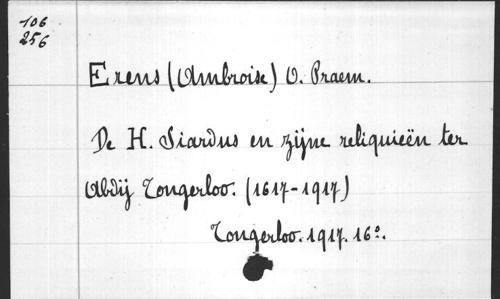 106
256
Erens (Ambroise) O. Praem.
De H. Siardus en zijne reliquieën ter
Abdij Tongerloo. (1617-1917)
Tongerloo. 1917. 16º.